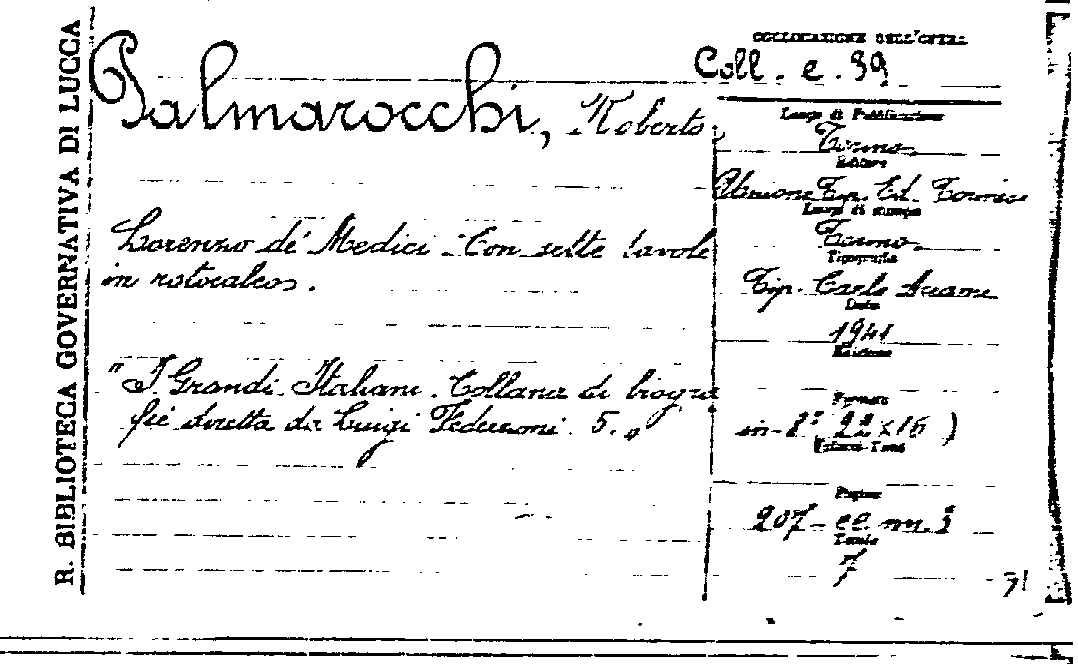 R. BIBLIOTECA GOVERNATIVA DI LUCCA
Palmarocchi, Roberto
Lorenzo de' Medici. Con sette tavole
in rotocalco.
"I Grandi Italiani. Collana di biogra
fie diretta da Luigi Federzoni. 5."
COLLOCAZIONE DELL'OPERA
Coll. e. 39
Luogo di Pubblicazione
Torino
Editore
Unione Tip. Ed. Torinese
Luogo di stampa
Torino
Tipografia
Tip. Carlo Accame
Data
1941
Edizione
Formato
in-8° 22x16)
Pagine
207- cc nn. 3
Tavole
7